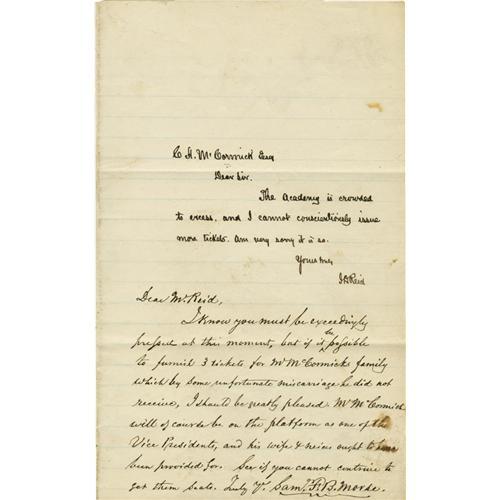 C. H. McCormick Esq
Dear Sir.
The Academy is crowded
to excess, and I cannot conscientiously issue
more tickets. Am very sorry it is so.
Yours truly
J D Reid
Dear Mr. Reid,
I know you must be exceedingly
pressed at this moment, but if it be possible
to furnish 3 tickets for Mr McCormick family
which by some unfortunate miscarriage he did not
receive, I should be greatly pleased. Mr McCormick
will of course be on the platform as one of the
Vice Presidents, and his wife & neice ought to have
been provided for. See if you cannot contrive to
get them seats. Truly Yr. Saml. F. B. Morse.